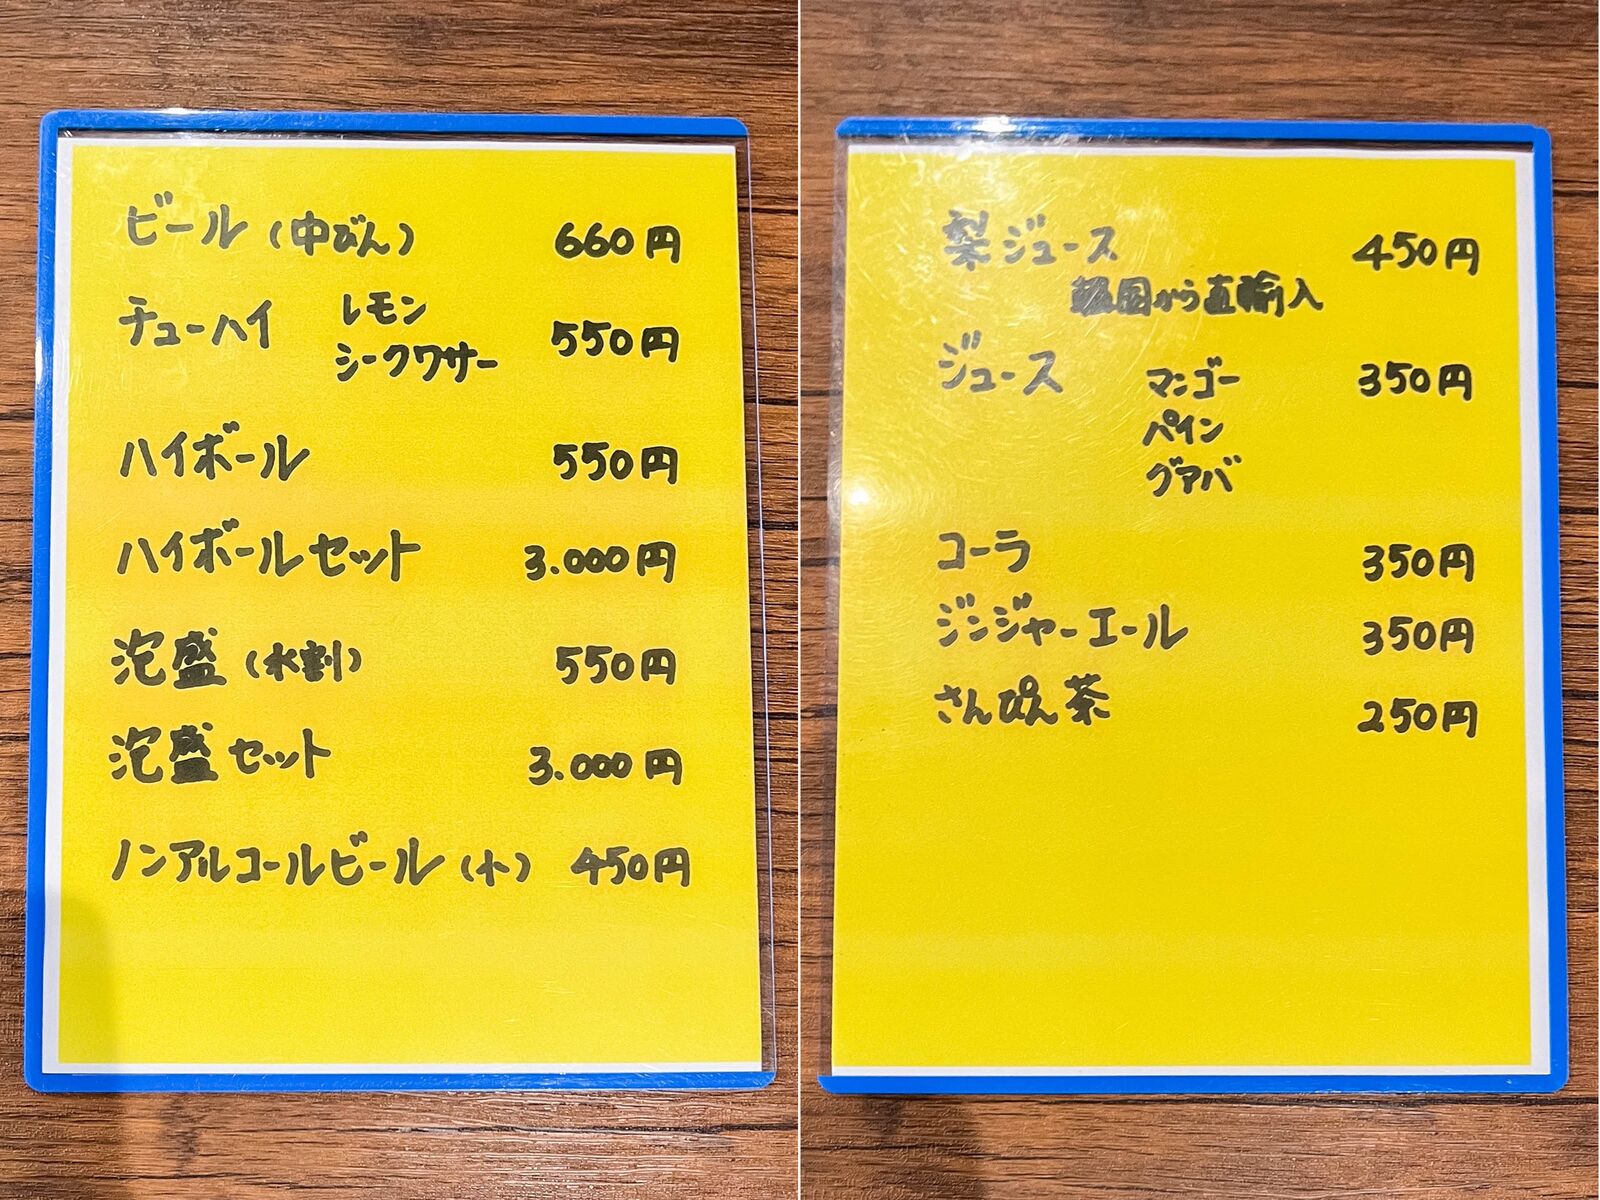 ビール(中びん) 660円
チューハイ レモン
シークワサー 550円
ハイボール 550円
ハイボールセット 3.000円
泡盛(水割) 550円
泡盛セット 3.000円
ノンアルコールビール(小) 450円
梨ジュース 450円
韓国から直輸入
ジュース マンゴー 350円
パイン
グアバ
コーラ 350円
ジンジャーエール 350円
さんぴん茶 250円